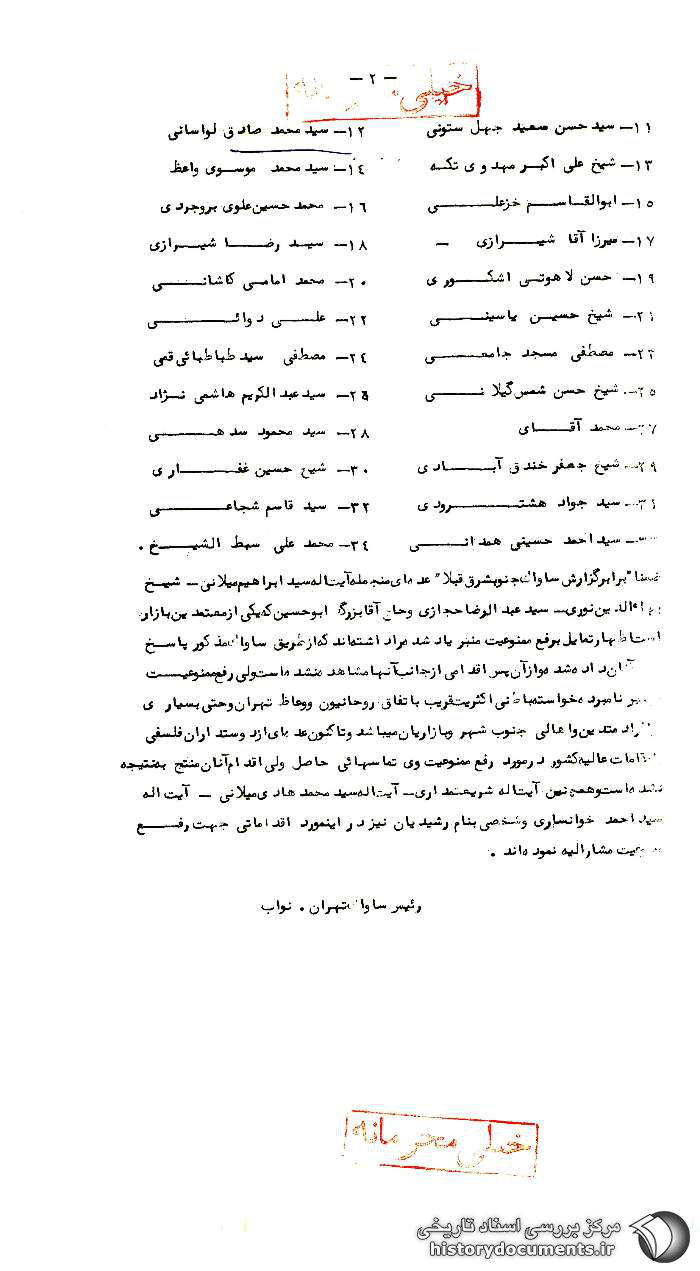 خیلی محرمانه
- ۲ -
۱۱- سید حسن سعید چهل ستونی ۱۲- سید محمد صادق لواسانی
۱۳- شیخ علی اکبر مهدوی تکه ۱٤- سید محمد موسوی واعظ
۱۵- ابوالقاسم خزعلی ۱٦- محمد حسین علوی بروجردی
۱۷- میرزا آقا شیرازی - ۱۸- سید رضا شیرازی
۱۹- حسن لاهوتی اشکوری ۲۰- محمد امامی کاشانی
۲۱- شیخ حسین یاسینی ۲۲- علی دوانی
۲۳- مصطفی مسجد جامعی ۲٤- مصطفی سید طباطبائی قمی
۲۵- شیخ حسن شمس گیلانی ۲٦- سید عبدالکریم هاشمی نژاد
۲۷- محمد آقای ۲۸- سید محمود سدهی
۲۹- شیخ جعفر خندق آبادی ۳۰- شیخ حسین غفاری
۳۱- سید جواد هشترودی ۳۲- سید قاسم شجاعی
سید احمد حسینی همدانی ۳٤- محمد علی سبط الشیخ .
ضمنا" برابر گزارش ساواک جنوبشرق قبلا" عده‌ای منجمله آیت‌اله سید ابراهیم میلانی - شیخ
بهاءالدین نوری - سید عبدالرضا حجازی وحاج آقا بزرگ ابوحسین که یکی از معتمدین بازار
است اظهار تمایل برفع ممنوعیت منبر یاد شده را داشته‌اند که از طریق ساواک مذکور پاسخ
آنان داده شد و از آن پس اقدامی از جانب آنها مشاهده نشده است ولی رفع ممنوعیت
منبر نامبرده خواسته باطنی اکثریت قریب باتفاق روحانیون و وعاظ تهران وحتی بسیاری
افراد متدین واهالی جنوب شهر وبازاریان میباشد وتاکنون عده‌ای از دوستداران فلسفی
مقامات عالیه کشور در مورد رفع ممنوعیت وی تماسهائی حاصل ولی اقدام آنان منتج به نتیجه
نشده است وهمچنین آیت‌اله شریعتمداری - آیت‌اله سید محمد هادی میلانی - آیت اله
سید احمد خوانساری وشخصی بنام رشیدیان نیز در اینمورد اقداماتی جهت رفع
ممنوعیت مشارالیه نموده‌اند .
رئیس ساواک تهران . نواب
خیلی محرمانه
مرکز بررسی اسناد تاریخی
historydocuments.ir